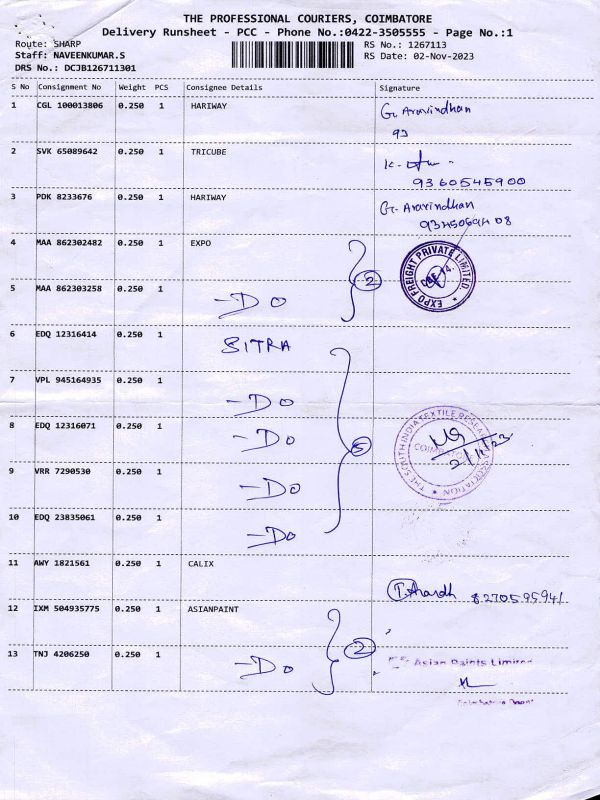 THE PROFESSIONAL COURIERS, COIMBATORE
Delivery Runsheet - PCC - Phone No.:0422-3505555 - Page No.:1
Route: SHARP
Staff: NAVEENKUMAR.S
DRS No.: DCJB126711301
RS No.: 1267113
RS Date: 02-Nov-2023
S No Consignment No Weight PCS Consignee Details Signature
1 CGL 100013806 0.250 1 HARIWAY G. Aravindhan
93
2 SVK 65089642 0.250 1 TRICUBE
9360545900
3 PDK 8233676 0.250 1 HARIWAY G. Aravindhan
4 MAA 862302482 0.250 1 EXPO
EXPO FREIGHT PRIVATE LIMITED.
5 MAA 862303258 0.250 1 -DO 2
6 EDQ 12316414 0.250 1 SITRA
7 VPL 945164935 0.250 1 -DO
8 EDQ 12316071 0.250 1 -DO 5
THE SOUTH INDIA TEXTILE RESEARCH ASSOCIATION
2/11/23
9 VRR 7290530 0.250 1 -DO
10 EDQ 23835061 0.250 1 -DO
11 AWY 1821561 0.250 1 CALIX
8270595941
12 IXM 504935775 0.250 1 ASIANPAINT
13 TNJ 4206250 0.250 1 -DO 2
Asian Paints Limited